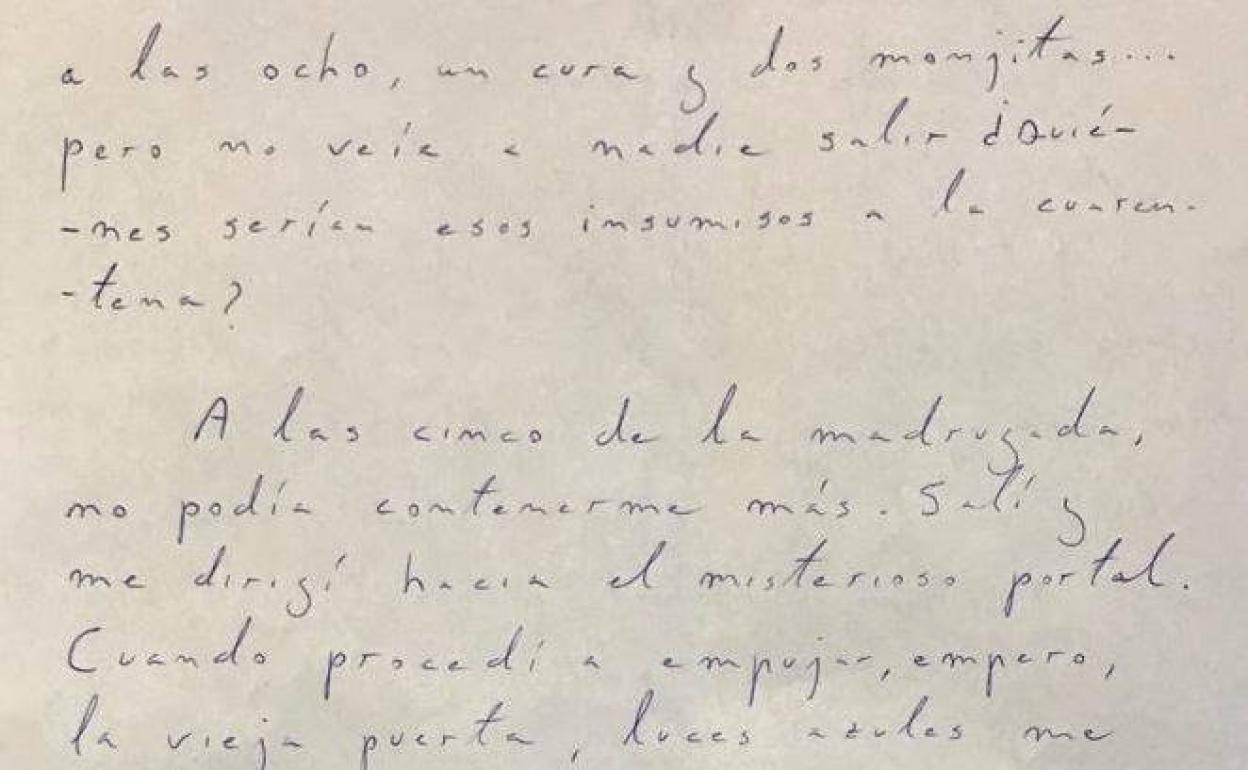 a las ocho, un cura y dos monjitas...
pero no veía a nadie salir ¿Quié-
-nes serían esos insumisos a la cuaren-
-tena?
A las cinco de la madrugada,
no podía contenerme más. Salí y
me dirigí hacia el misterioso portal.
Cuando procedí a empujar, empero,
la vieja puerta, luces azules me